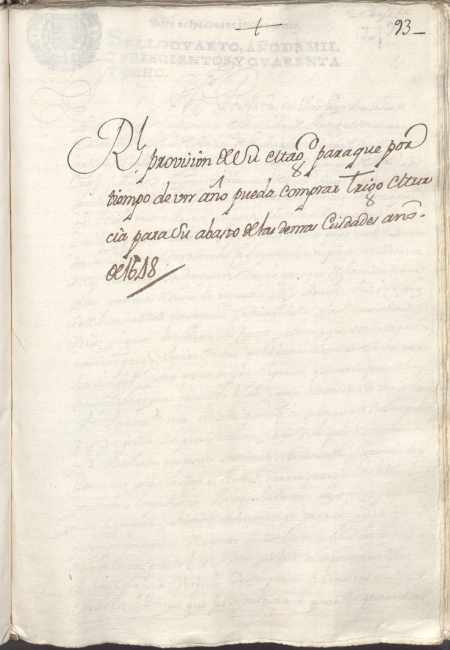 93
SELLO QVARTO, AÑO DE MIL
Y SEISCIENTOS Y QVARENTA
Y OCHO.
Rl. provision de Su para que por
tiempo de vn año pueda comprar Trigo
cia para Su abasto de las demas Ciudades año
de 1648